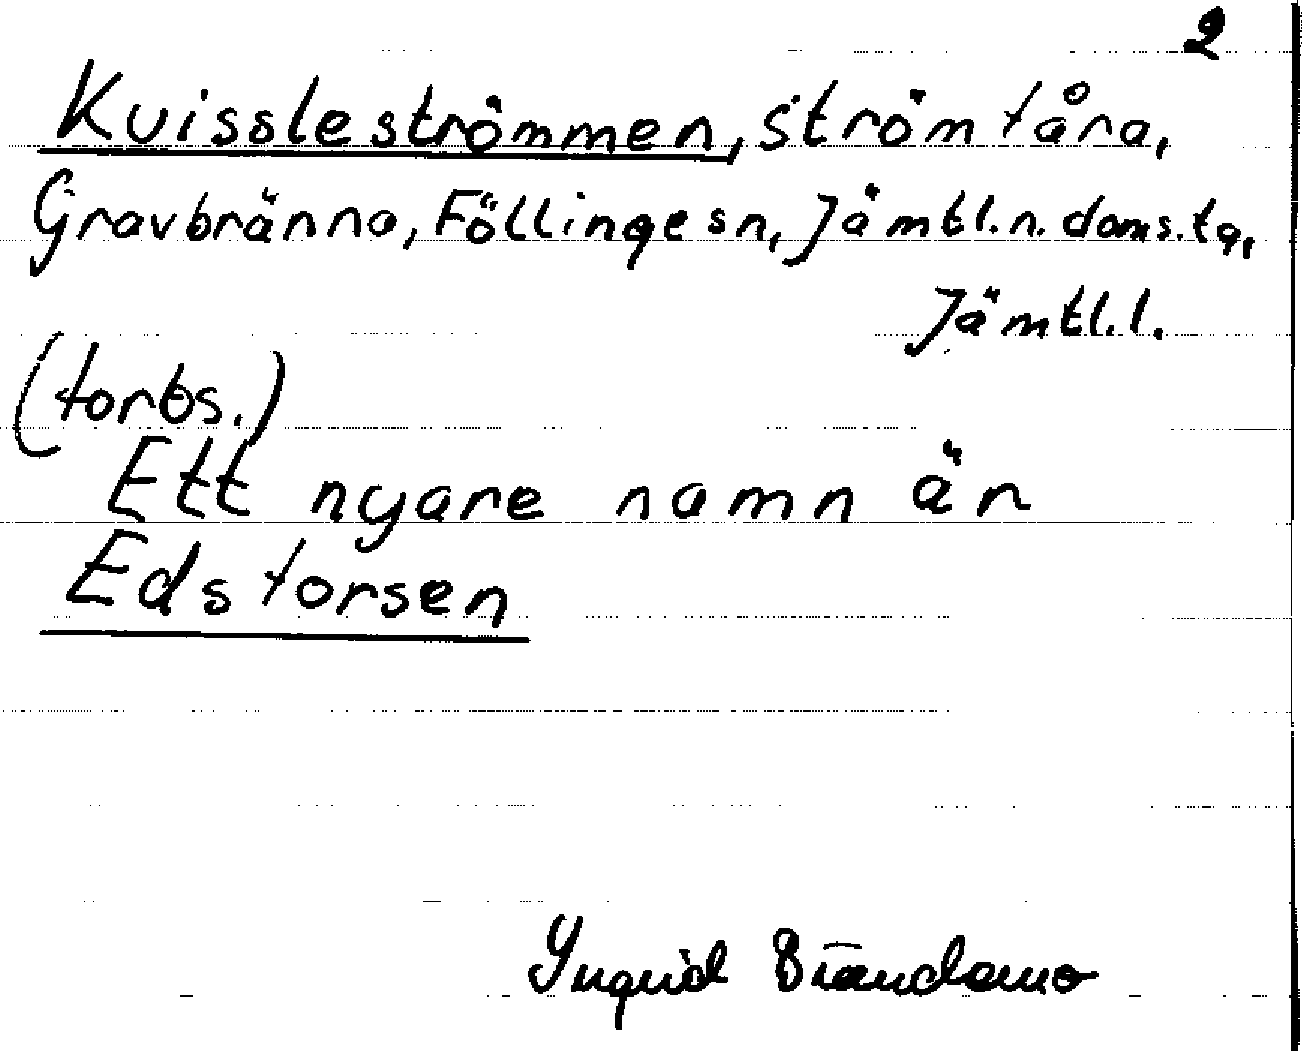 2
Kvissleströmmen, ström i åra,
Gravbränna, Föllinge sn, Jämtl.n. doms.tg,
Jämtl.l.
(forts.)
Ett nyare namn är
Edsforsen
Yngrid